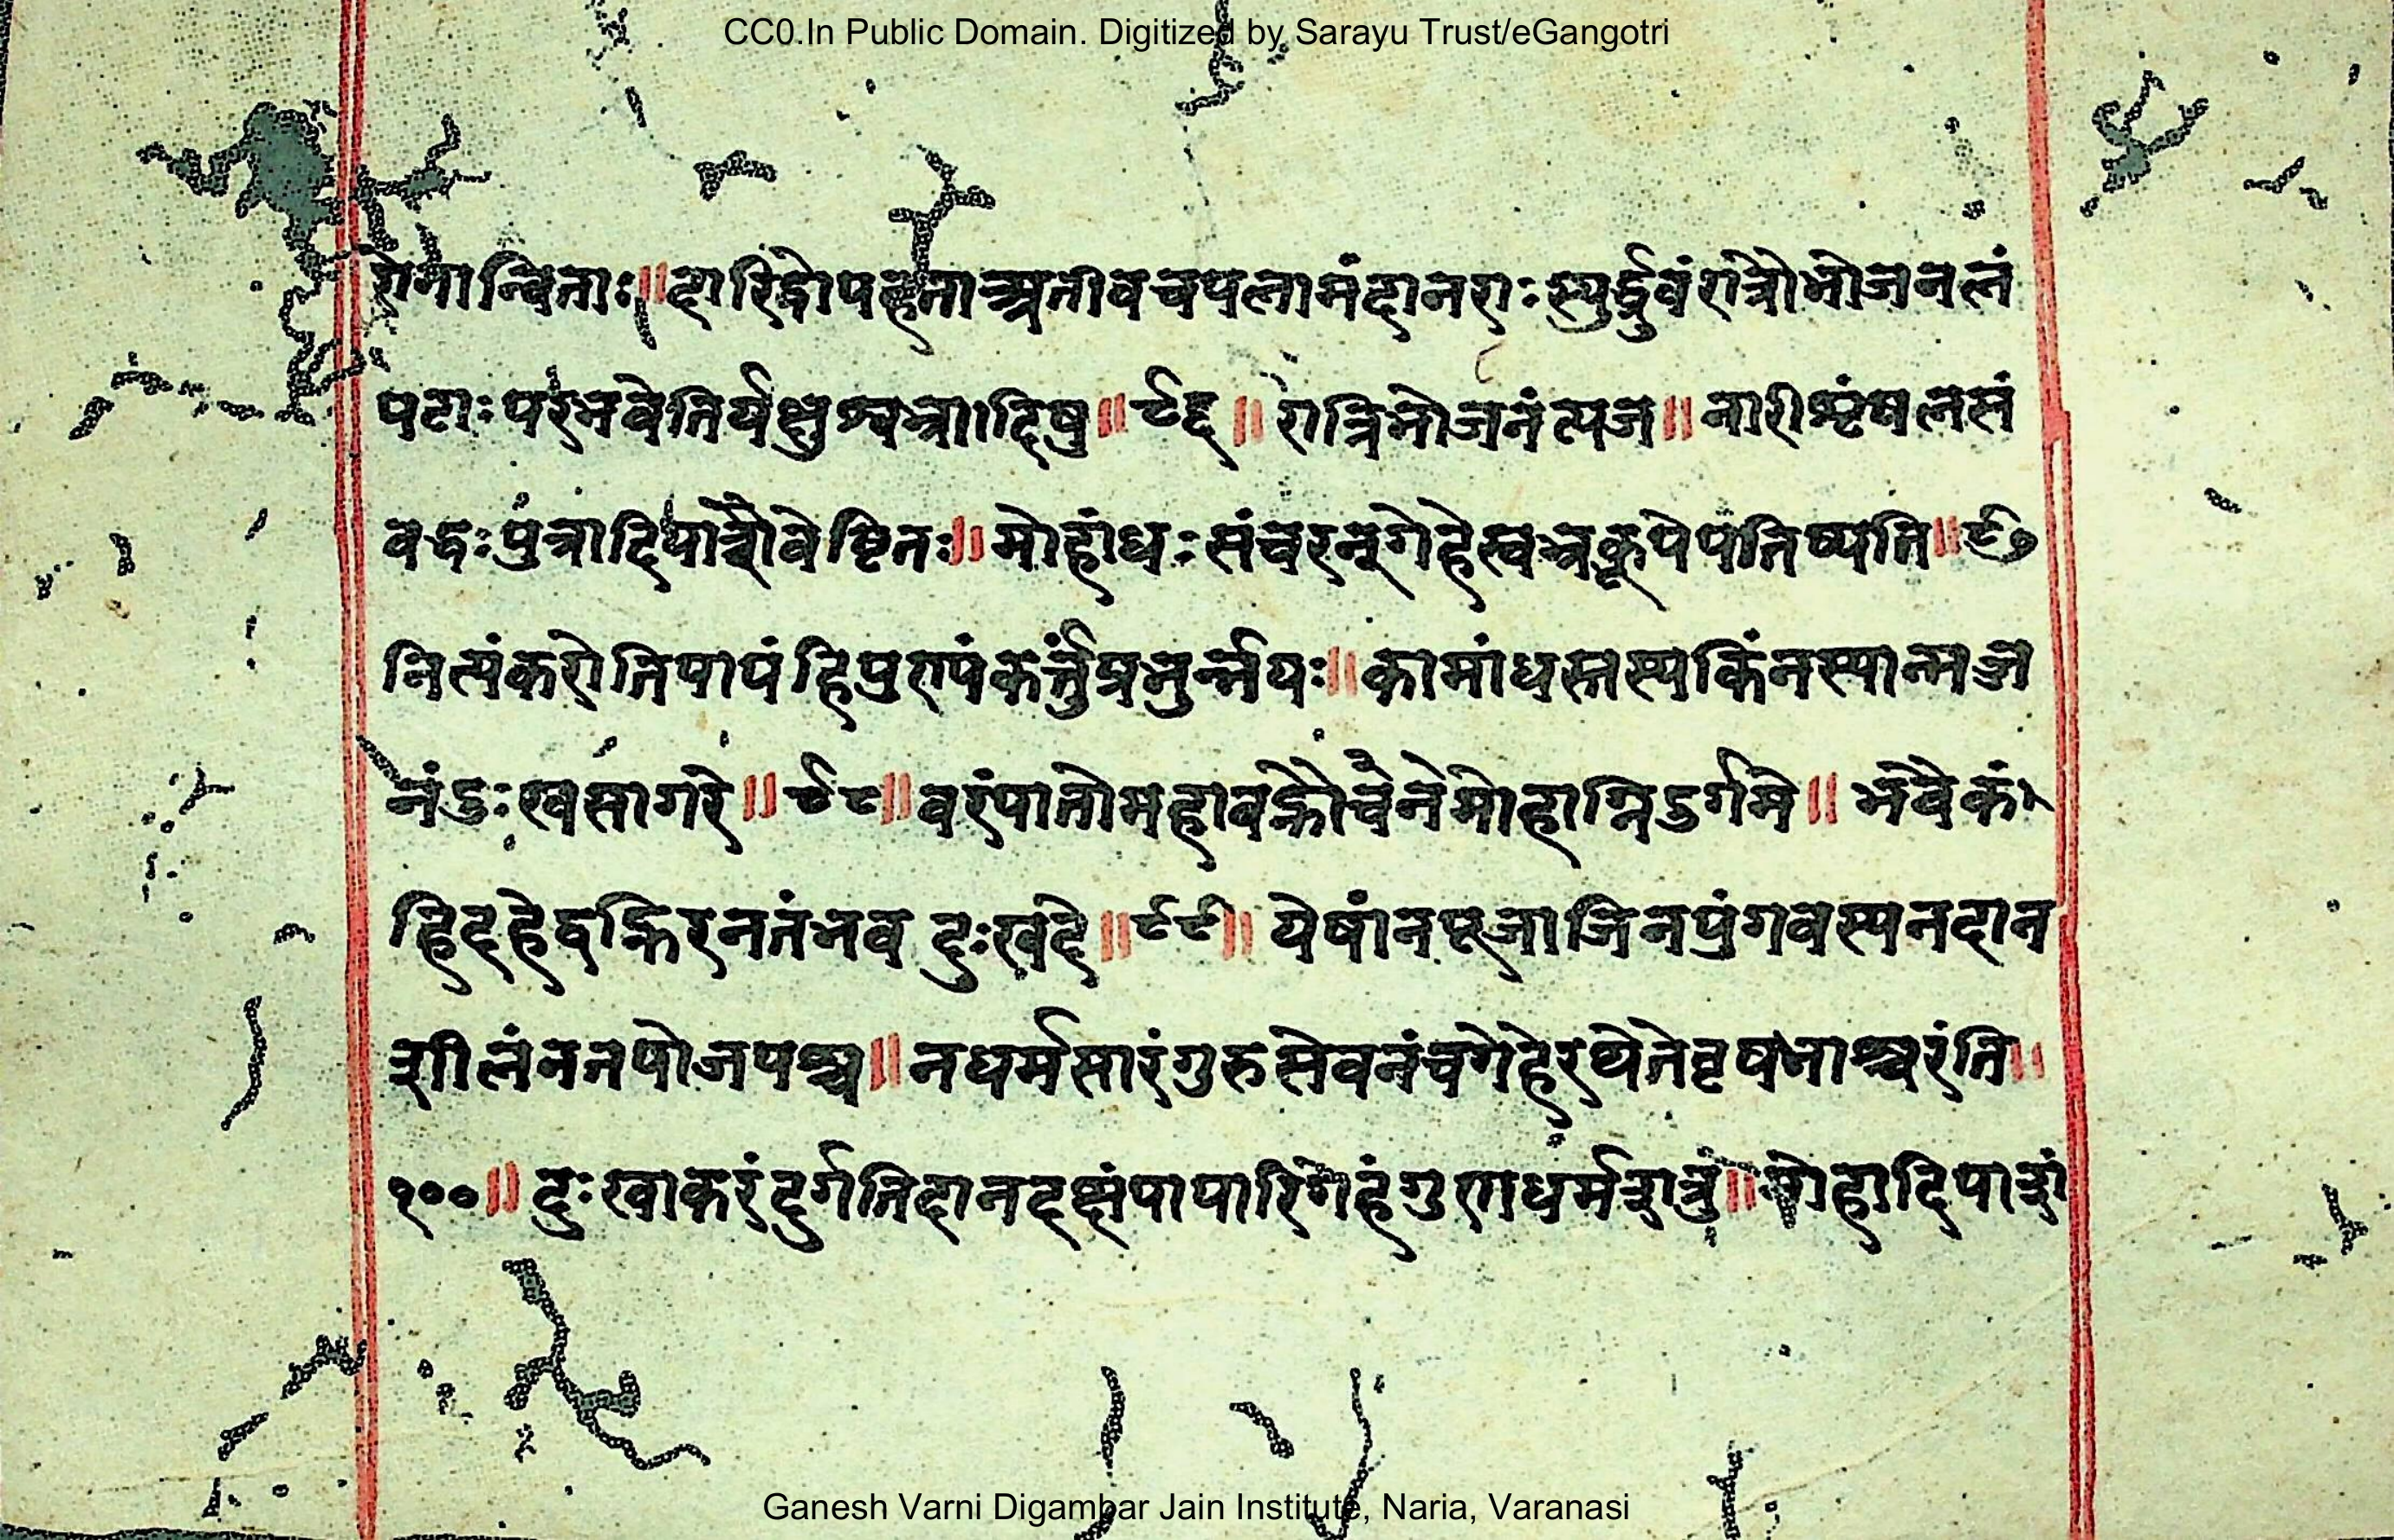 CC0.In Public Domain. Digitized by Sarayu Trust/eGangotri
गेनान्विताः॥दारिद्रोपहताश्चतीवचपलामंदानराःस्युर्द्ध्रुवंरात्रौभोजनलं
पटाःपरभवेतिर्यक्षुश्वभ्रादिषु॥९६॥रात्रिभोजनंत्यज॥नारीशृंखलसं
बद्धःपुत्रादिपाशैवेष्टितः॥मोहांधःसंचरन्गेहेस्वभ्रकूपेपतिष्यति॥९७
नित्यंकरोतिपापंहिपुण्यंकर्त्तुप्रभुर्न्नयः॥कामांधस्तस्यकिंनस्यान्मज्ज
नंदुःखसागरे॥९८॥वरंपातोमहावह्नौचैनेमोहाग्निदुर्गमे॥भवैकं
हिदहेद्वह्निरनंतंभवदुःखदे॥९९॥येषांनपूजाजिनपुंगवस्यनदान
शीलंनतपोजपश्च॥नधर्मसारंगुरुसेवनंचगेहेरथेतेवृषभाश्चरंति॥
१००॥दुःखाकरंदुर्गतिदानदक्षंपापारिगेहंगुणधर्मशत्रुं॥मोहादिपाशं
Ganesh Varni Digambar Jain Institute, Naria, Varanasi